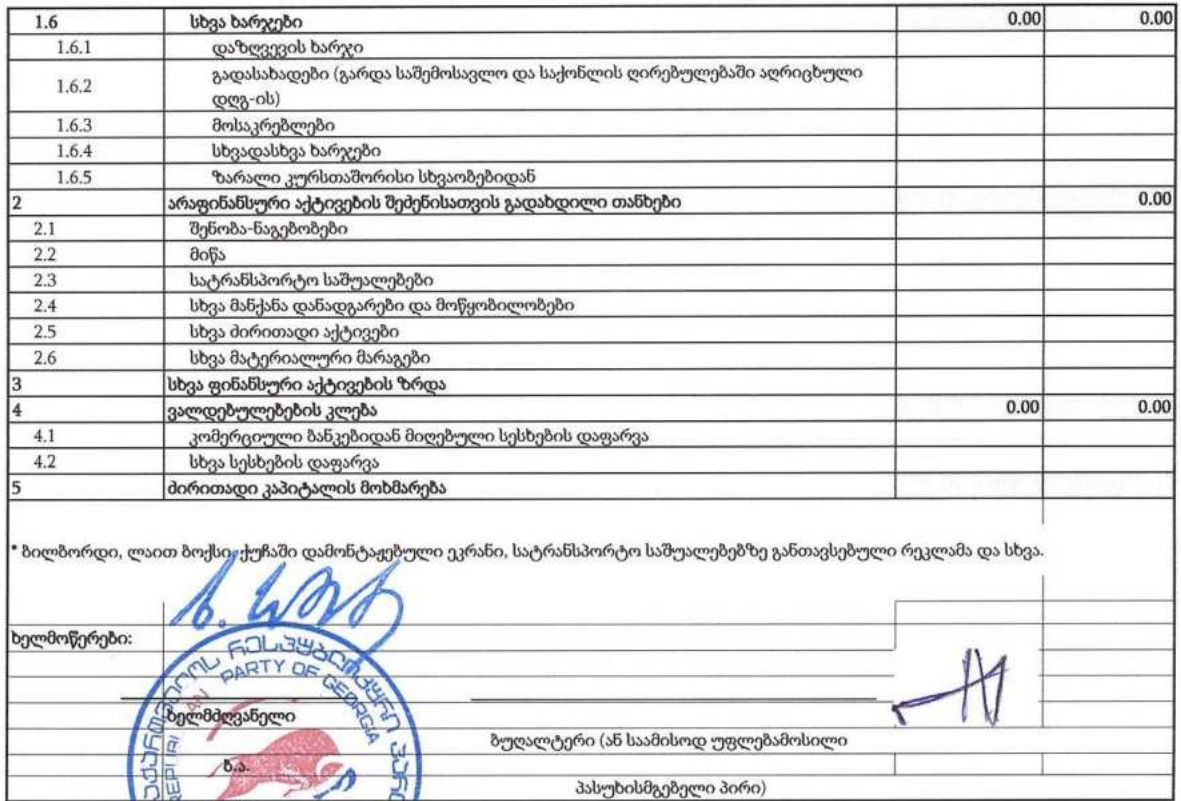 1.6 სხვა ხარჯები 0.00 0.00
1.6.1 დაზღვევის ხარჯი
1.6.2 გადასახადები (გარდა საშემოსავლო და საქონლის ღირებულებაში აღრიცხული
დღგ-ის)
1.6.3 მოსაკრებლები
1.6.4 სხვადასხვა ხარჯები
1.6.5 ზარალი კურსთაშორისი სხვაობებიდან
2 არაფინანსური აქტივების შეძენისათვის გადახდილი თანხები 0.00
2.1 შენობა-ნაგებობები
2.2 მიწა
2.3 სატრანსპორტო საშუალებები
2.4 სხვა მანქანა დანადგარები და მოწყობილობები
2.5 სხვა ძირითადი აქტივები
2.6 სხვა მატერიალური მარაგები
3 სხვა ფინანსური აქტივების ზრდა
4 ვალდებულებების კლება 0.00 0.00
4.1 კომერციული ბანკებიდან მიღებული სესხების დაფარვა
4.2 სხვა სესხების დაფარვა
5 ძირითადი კაპიტალის მოხმარება
* ბილბორდი, ლაით ბოქსი, ქუჩაში დამონტაჟებული ეკრანი, სატრანსპორტო საშუალებებზე განთავსებული რეკლამა და სხვა.
ხელმოწერები:
რესპუბლიკური
PARTY OF GEORGIA
ხელმძღვანელი
ბუღალტერი (ან საამისოდ უფლებამოსილი
ბ.ა.
პასუხისმგებელი პირი)